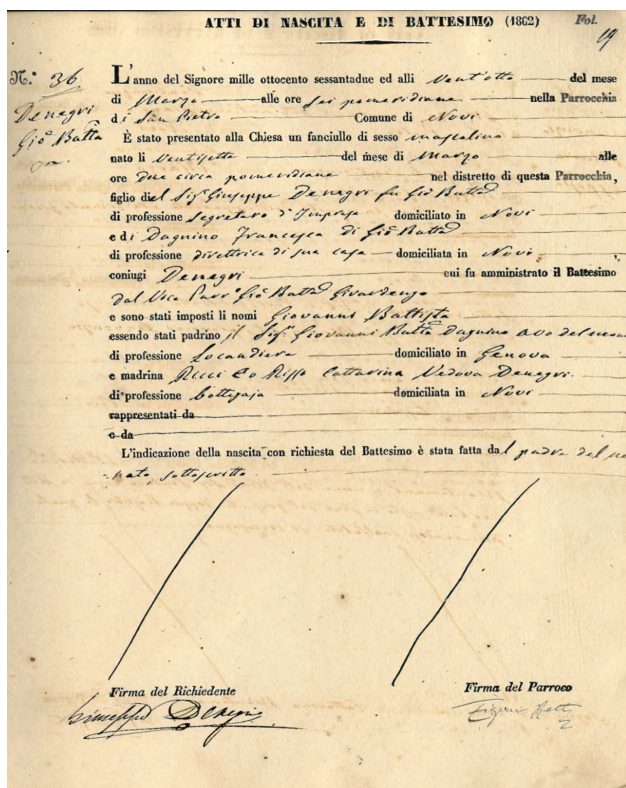 ATTI DI NASCITA E DI BATTESIMO (1862) Fol.
19
N.º 36
Denegri
Gio Batta
L'anno del Signore mille ottocento sessantadue ed alli Ventotto del mese
di Marzo alle ore sei pomeridiane nella Parrocchia
di San Pietro Comune di Novi
È stato presentato alla Chiesa un fanciullo di sesso mascolino
nato li Ventisette del mese di Marzo alle
ore due circa pomeridiane nel distretto di questa Parrocchia,
figlio del Sigr Giuseppe Denegri fu Gio Batta
di professione Segretaro d'Impresa domiciliato in Novi
e di Dagnino Francesca di Gio Batta
di professione direttrice di sua casa domiciliata in Novi
coniugi Denegri cui fu amministrato il Battesimo
dal Vice Parro Gio Batta Girardengo
e sono stati imposti li nomi Giovanni Battista
essendo stati padrino il Sigr Giovanni Batta Dagnino avo del neon
di professione Locandiere domiciliato in Genova
e madrina Ricci Cattarina Vedova Denegri
di professione bottegaja domiciliata in Novi
rappresentati da
e da
L'indicazione della nascita con richiesta del Battesimo è stata fatta dal padre del neo
nato sottoscritto
Firma del Richiedente Firma del Parroco
Giuseppe Denegri